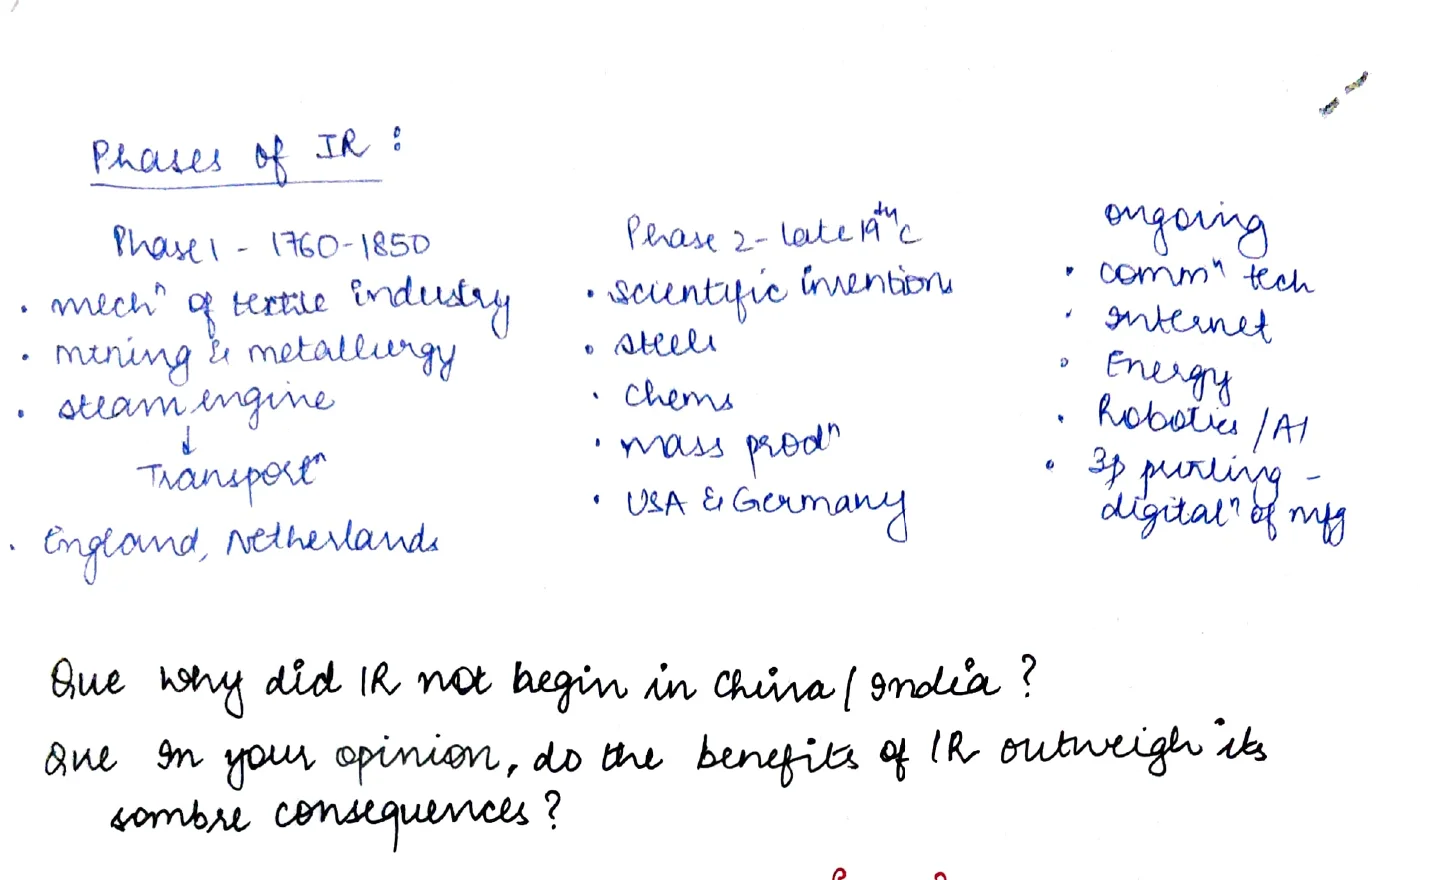 Phases of IR :
Phase 1 - 1760-1850
• mechⁿ of textile industry
• mining & metallurgy
• steam engine
↓
Transportⁿ
• England, Netherlands
Phase 2 - late 19th c
• scientific inventions
• steels
• chems
• mass prodⁿ
• USA & Germany
ongoing
• commⁿ tech
• Internet
• Energy
• Robotics / AI
• 3p printing -
digitalⁿ of mfg
Que why did IR not begin in China / India ?
Que In your opinion, do the benefits of IR outweigh its
sombre consequences ?